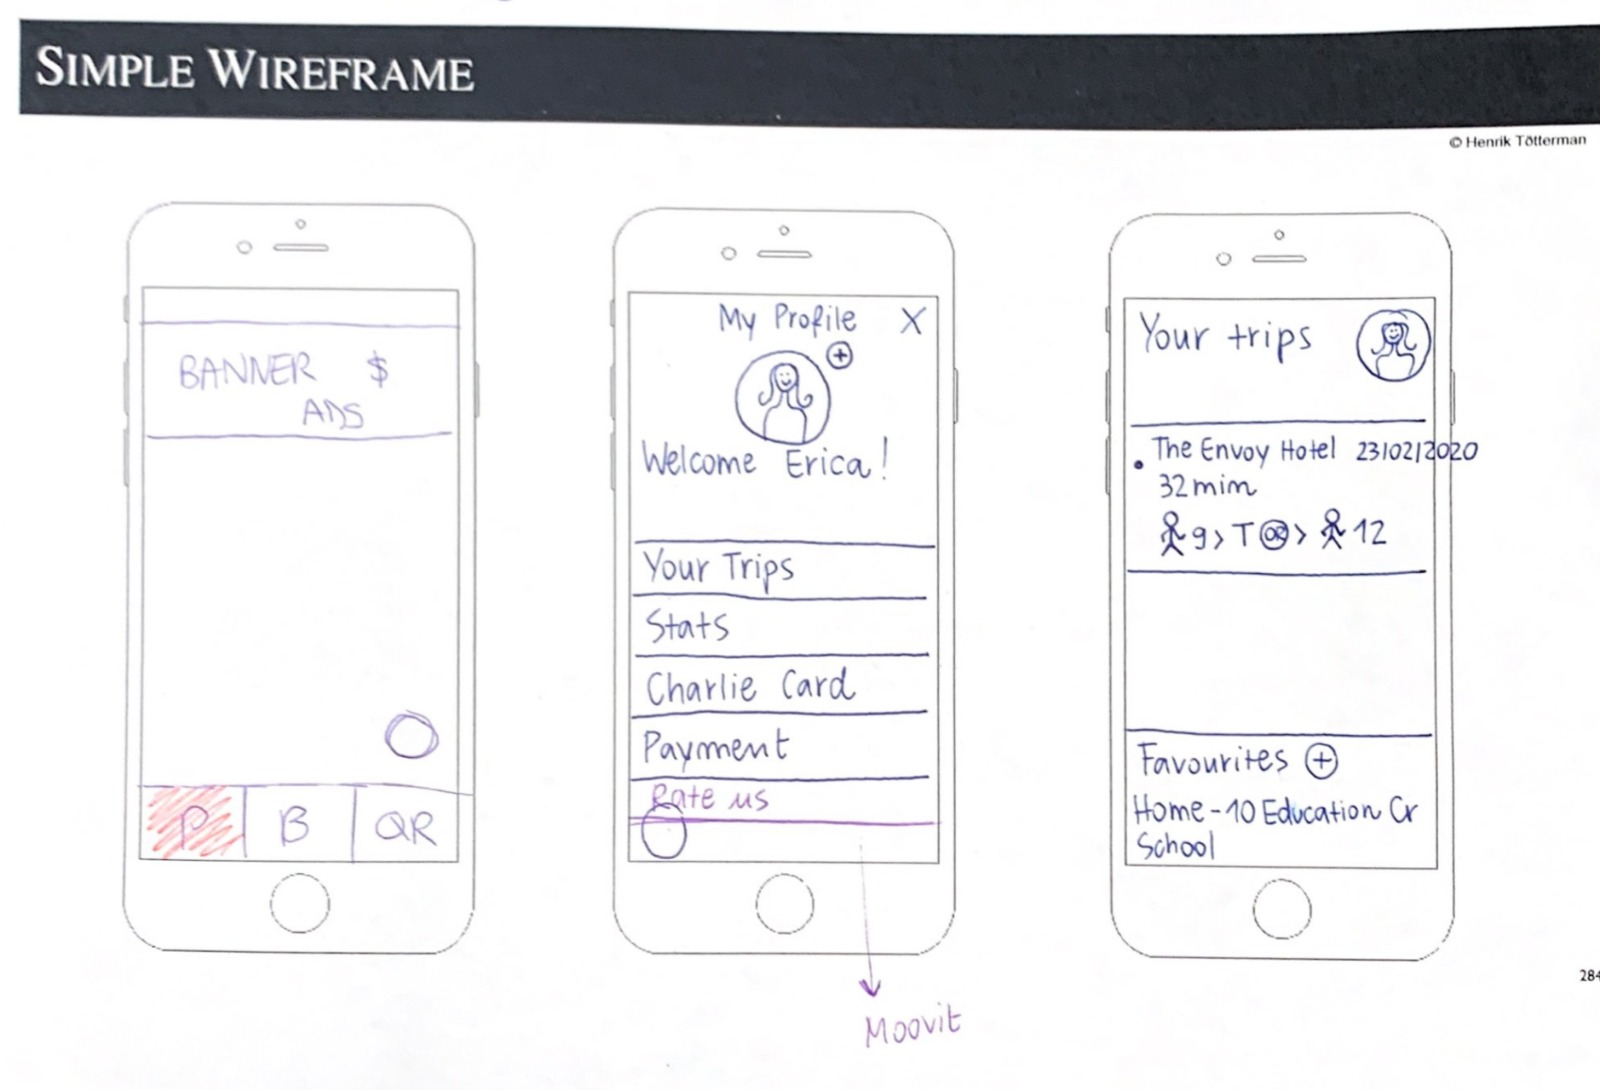 SIMPLE WIREFRAME
© Henrik Tötterman
BANNER $
ADS
P B QR
My Profile X
Welcome Erica!
Your Trips
Stats
Charlie Card
Payment
Rate us
Moovit
Your trips
• The Envoy Hotel 23/02/2020
32 min
9 > T OR > 12
Favourites +
Home - 10 Education Cr
School
284